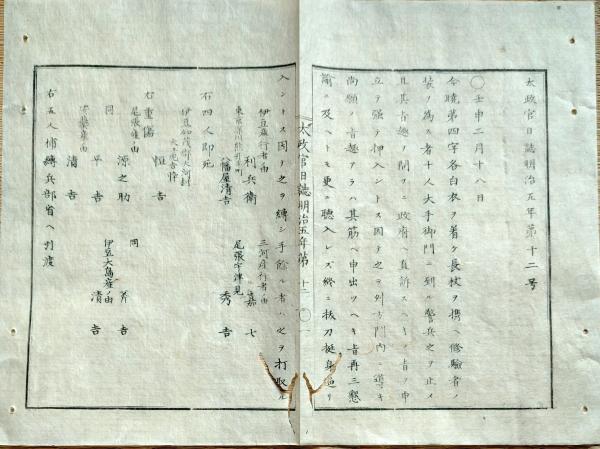 太政官日誌明治五年第十二号
〇壬申二月十八日
今暁第四字各白衣ヲ著ケ長杖ヲ携ヘ修験者ノ
装ヲ為ス者十人大手御門ニ到ル警兵之ヲ止メ
且其旨趣ヲ問フニ政府ニ直訴スヘキノ旨ノ申
立テ強テ押入ントス因テ之ヲ列方門内ニ導キ
尚願ノ旨趣アラハ其筋ヘ申出ツヘキ旨再三懇
諭ニ及ヘトモ更ニ聴入レズ終ニ抜刀挺身迫リ
太政官日誌明治五年第十二
〇一
入ントス因テ之ヲ縛シ手餘ル者ハ之ヲ打取ル
伊豆産行者由
利兵衛
三河産行者由
嘉七
東京
幡屋清吉
尾張宇津見
秀吉
右四人即死
伊豆加茂郡大河村
恒吉
右重傷
尾張産由
源之助
同
昇吉
同
平吉
伊豆大島産ノ由
清吉
産由
清吉
右五人捕縛兵部省ヘ引渡